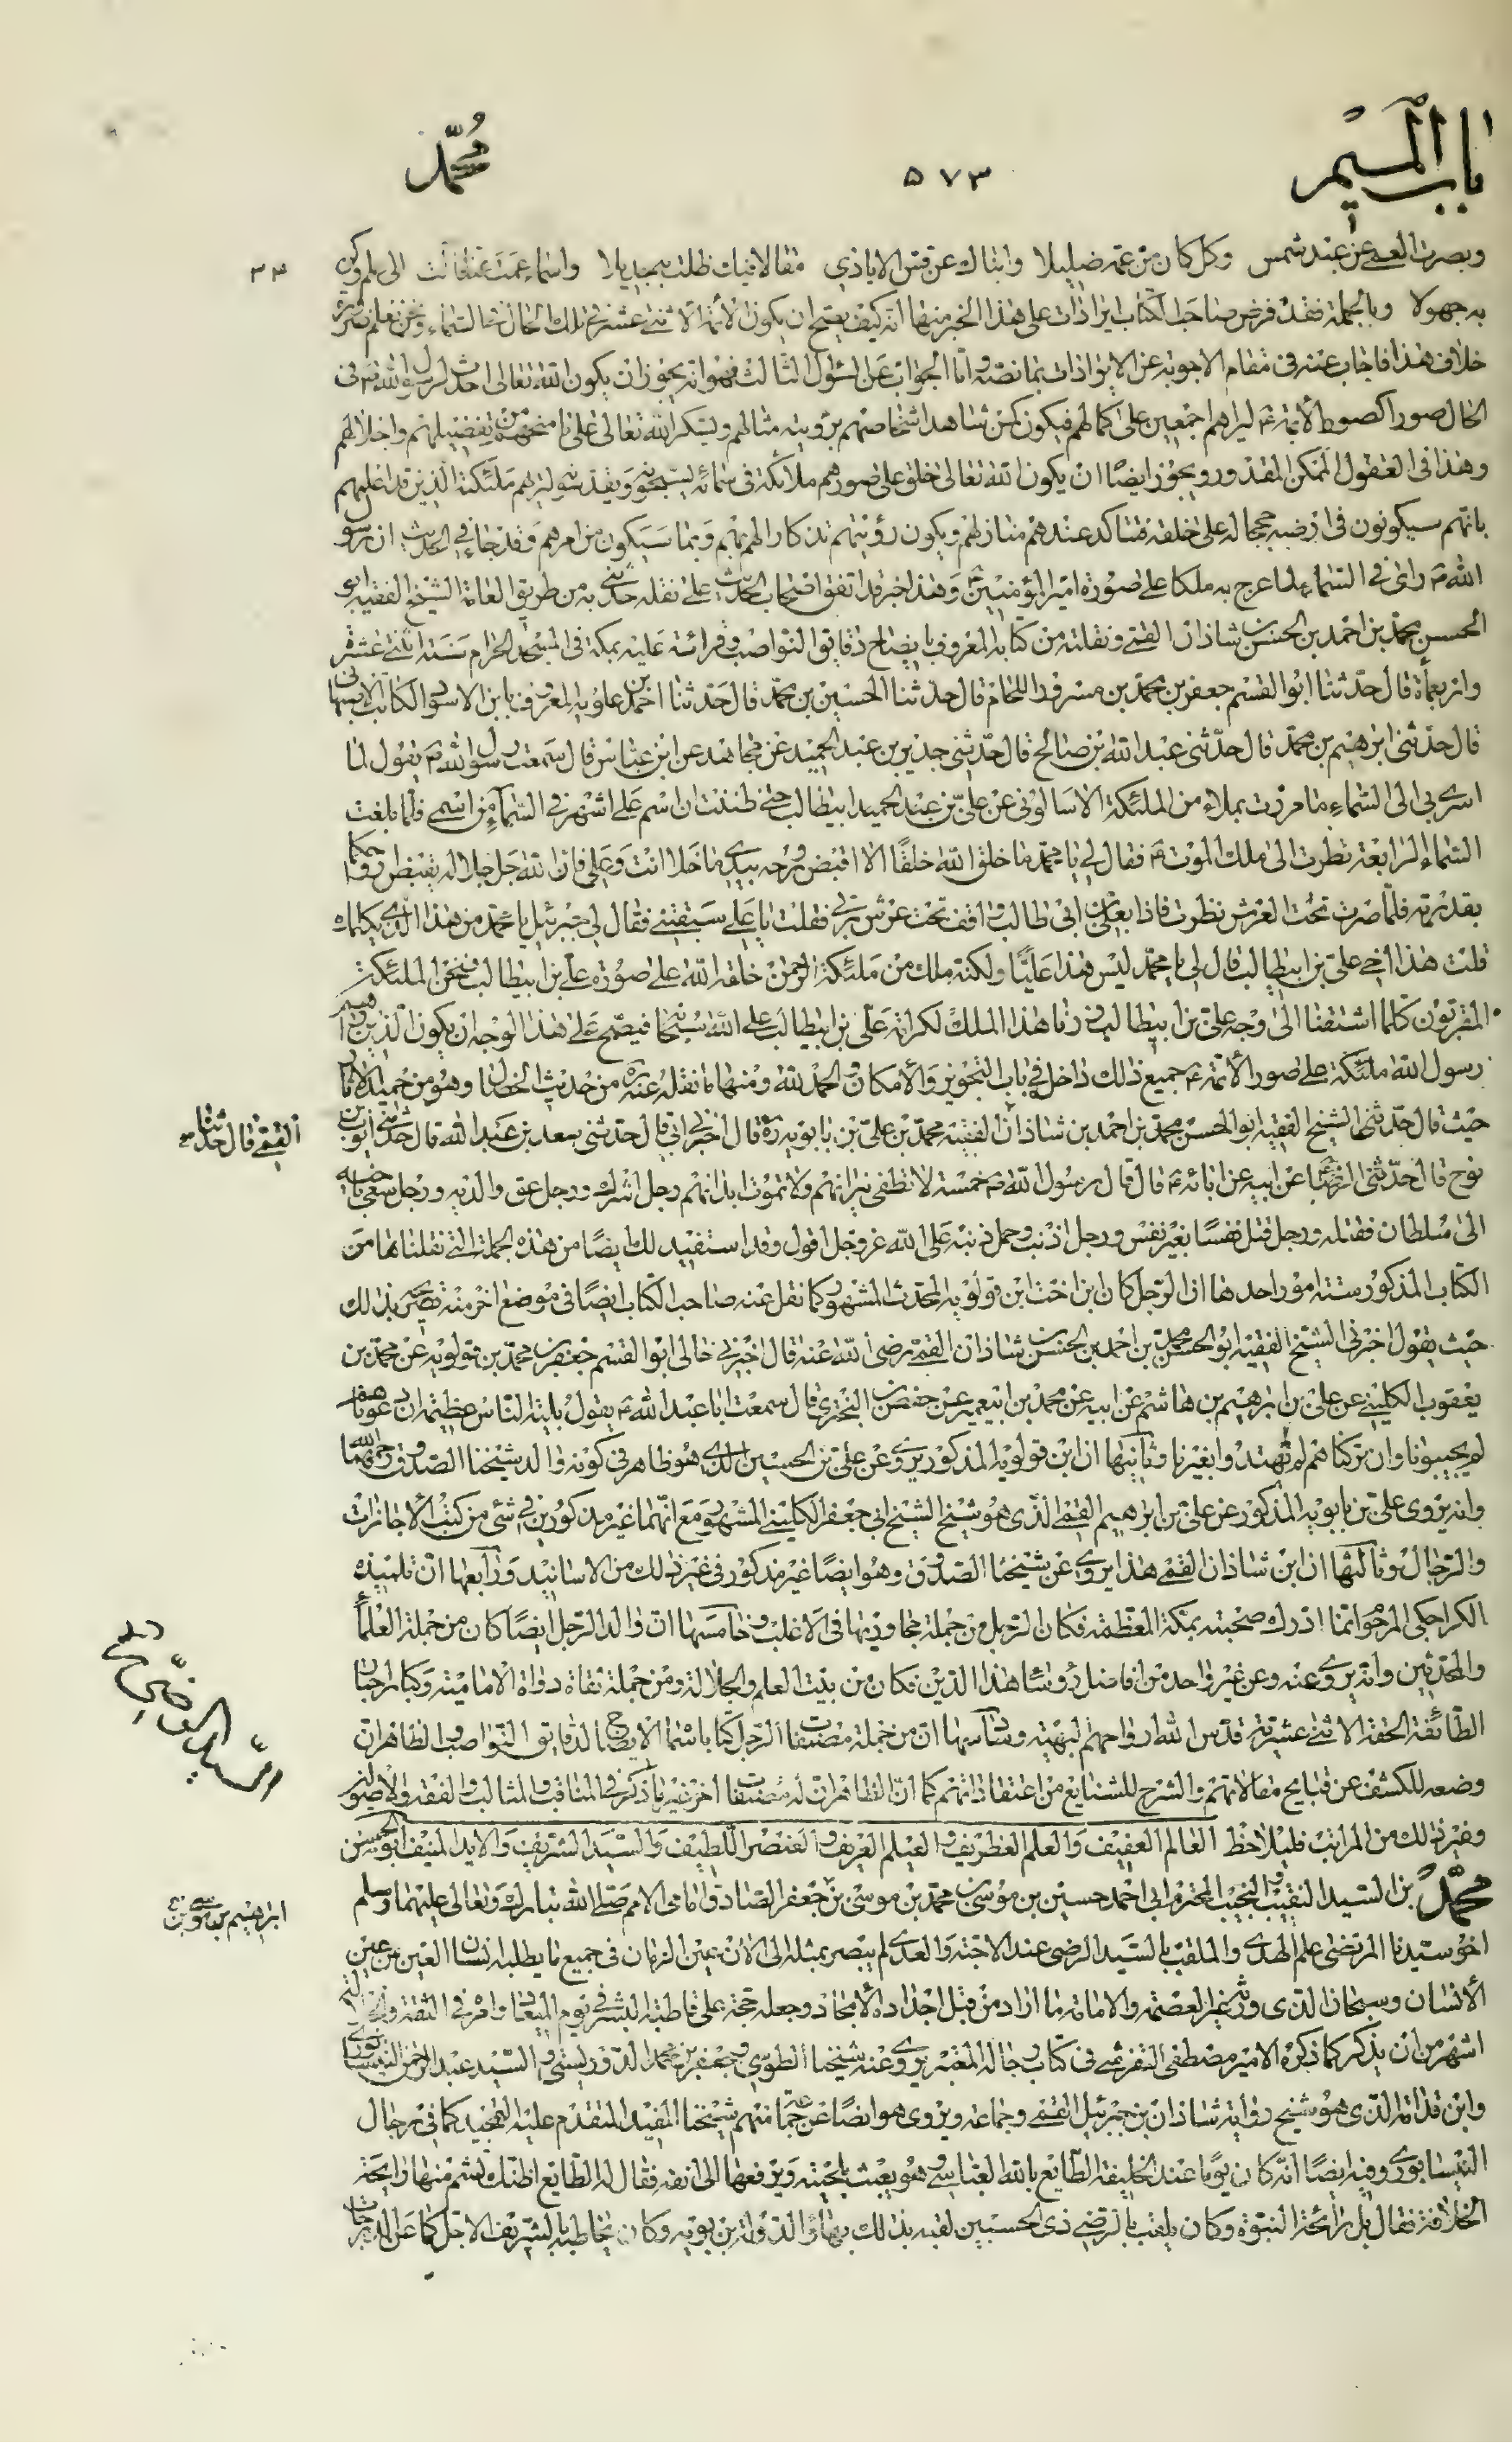 باب الميم
٥٧٣
محمد
٣٣
وبصرت العمى عن عبد شمس وكل كان من عمه ضليلا وانبأك عن قس الايادي مقالا فيك ظلت به جديلا واسماء عمت عنا فالت الى علم وكن
به جهولا وبالجملة فقد فرض صاحب الكتاب ايرادات على هذا الخبر منها انه كيف يصح ان يكون الأئمة الاثنى عشر في تلك الحال في السماء ونحن نعلم ضرورة
خلاف هذا فاجاب عنه في مقام الاجوبة عن الايرادات بما نصه واما الجواب عن السؤل الثالث فهو انه يجوز ان يكون الله تعالى احدث لرسول الله ص في
الحال صورا كصور الأئمة ع ليراهم اجمعين على كمالهم فيكون كمن شاهد اشخاصهم برؤيته مثالهم ويشكر الله تعالى على ما منحهم من تفضيلهم واجلالهم
وهذا في العقول الممكن المقدور ويجوز ايضا ان يكون الله تعالى خلق على صورهم ملائكة في سمائه يسبحونه ويقدسونه لتراهم ملئكته الذين قد اعلمهم
بانهم سيكونون في ارضه حججا له على خلقه فتتاكد عندهم منازلهم ويكون رؤيتهم تذكارا لهم بهم وبما سيكون من امرهم وقد جاء في الحديث ان رسول
الله ص راى في السماء لما عرج به ملكا على صورة امير المؤمنين ع وهذا خبر قد اتفق اصحاب الحديث على نقله حدثني به من طريق العامة الشيخ الفقيه ابو
الحسن محمد بن احمد بن الحسن بن شاذان القمي ونقلته من كتابه المعروف بايضاح دقايق النواصب وقرائته عليه بمكة في المسجد الحرام سنة اثنى عشرة
واربعمأة قال حدثنا ابو القسم جعفر بن محمد بن مسرور اللحام قال حدثنا الحسين بن محمد قال حدثنا احمد بن علويه المعروف بابن الاسود الكاتب الاصبهاني
قال حدثني ابرهيم بن محمد قال حدثني عبد الله بن صالح قال حدثني جرير بن عبد الحميد عن مجاهد عن ابن عباس قال سمعت رسول الله ص يقول لما
اسري بي الى السماء ما مررت بملاء من الملئكة الا سالوني عن علي بن ابيطالب حتى ظننت ان اسم علي اشهر في السماء من اسمي فلما بلغت
السماء الرابعة نظرت الى ملك الموت ع فقال لي يا محمد ما خلق الله خلقا الا اقبض روحه بيدي ما خلا انت وعلي فان الله جل جلاله يقبض ارواحكما
بقدرته فلما صرت تحت العرش نظرت فاذا بعلي بن ابي طالب واقف تحت عرش ربي فقلت يا علي سبقتني فقال لي جبرئيل يا محمد من هذا الذي يكلمك
قلت هذا اخي علي بن ابيطالب قال لي يا محمد ليس هذا عليا ولكنه ملك من ملئكة الرحمن خلقه الله على صورة علي بن ابيطالب فنحن الملئكة
المقربون كلما اشتقنا الى وجه علي بن ابيطالب زرنا هذا الملك لكرامة علي بن ابيطالب على الله سبحانه فيصح على هذا الوجه ان يكون الذين راهم
رسول الله ملئكة على صور الأئمة ع جميع ذلك داخل في باب التجويز والامكان والحمد لله ومنها ما نقله عنه من حديث الخصال وهو من حميد الاثار
حيث قال حدثنيها الشيخ الفقيه ابو الحسن محمد بن احمد بن شاذان الفقيه محمد بن علي بن بابويه ره قال اخبرني ابي قال حدثني سعد بن عبد الله قال حدثني ايوب بن
القمي قال حدثنا صح
نوح قال حدثني الرضا ع عن ابيه عن ابائه ع قال قال رسول الله ص خمسة لا تطفى نيرانهم ولا تموت ابدانهم رجل اشرك ورجل عق والديه ورجل سعى باخيه
الى سلطان فقتله ورجل قتل نفسا بغير نفس ورجل اذنب وحمل ذنبه على الله عز وجل اقول وقد استفيد لك ايضا من هذه الجملة التي نقلناها من
الكتاب المذكور ستة امور احدها ان الرجل كان ابن اخت ابن قولويه المحدث المشهور كما نقل عنه صاحب الكتاب ايضا في موضع اخر منه تصريحه بذلك
حيث يقول اخبرني الشيخ الفقيه ابو الحسن محمد بن احمد بن الحسن بن شاذان القمي رضي الله عنه قال اخبرني خالي ابو القسم جعفر بن محمد بن قولويه عن محمد بن
يعقوب الكليني عن علي بن ابرهيم بن هاشم عن ابيه عن محمد بن ابيعمير عن حفص بن البختري قال سمعت ابا عبد الله ع يقول بلية الناس عظيمة ان دعوناهم
لم يجيبونا وان تركناهم لم يهتدوا بغيرنا وثانيها ان ابن قولويه المذكور يروي عن علي بن الحسين الذي هو ظاهر في كونه والد شيخنا الصدوق رحمهما الله
وانه يروى علي بن بابويه المذكور عن علي بن ابراهيم القمي الذي هو شيخ الشيخ ابي جعفر الكليني المشهور مع انهما غير مذكورين في شئ من كتب الاجازات
والرجال وثالثها ان ابن شاذان القمي هذا يروي عن شيخنا الصدوق وهو ايضا غير مذكور في غير ذلك من الاسانيد ورابعها ان تلميذه
الكراجكي المرحوم انما ادرك صحبته بمكة المعظمة فكان الرجل من جملة مجاوريها في الاغلب وخامسها ان والد الرجل ايضا كان من جملة العلماء
والمحدثين وانه يروي عنه وعن غير واحد من افاضل رؤساء هذا الدين فكان من بيت العلم والجلالة ومن جملة ثقاة رواة الامامية وكبار رجال
الطائفة الحقة الاثنى عشرية قدس الله ارواحهم البهية وسادسها ان من جملة مصنفات الرجل كتابا سماه الايضاح لدقايق النواصب والظاهر ان
وضعه للكشف عن قبايح مقالاتهم والشرح للشنايع من اعتقاداتهم كما ان الظاهر ان له مصنفات اخر غير ما ذكر في المناقب والمثالب والفقه والاصولين
وغير ذلك من المراتب فليلاحظ العالم العفيف والعلم الغطريف والعيلم العريف والعنصر اللطيف والسيد الشريف والايد المنيف ابو الحسن
محمد بن السيد النقيب النجيب المحترم ابي احمد حسين بن موسى بن محمد بن موسى بن جعفر الصادق امامي الامم صلى الله تبارك وتعالى عليهما وسلم
ابراهيم بن موسى بن صح
السيد الرضي رح
اخو سيدنا المرتضى علم الهدى والملقب بالسيد الرضي عند الاحبة والعدى لم يبصر بمثله الى الآن عين الزمان في جميع ما يطلبه انسان العين من عين
الانسان وسبحان الذي ورثه غير العصمة والامامة ما اراد من قبل اجداده الامجاد وجعله حجة على قاطبة البشر في يوم الميعاد وامره في الثقة والجلالة
اشهر من ان يذكر كما ذكره الامير مصطفى التفرشي في كتاب رجاله المعتبر يروي عنه شيخنا الطوسي وجعفر بن محمد الدوريستي والسيد عبد الرحمن النيسابوري
وابن قدامة الذي هو شيخ رواية شاذان بن جبرئيل القمي وجماعة ويروى هو ايضا عن جماعة منهم شيخنا المفيد المتقدم عليه التمجيد كما في رجال
النيسابوري وفيه ايضا انه كان يوما عند الخليفة الطايع بالله العباسي وهو يعبث بلحيته ويرفعها الى انفه فقال له الطايع اظنك تشم منها رايحة
الخلافة فقال بل رائحة النبوة وكان يلقب بالرضي ذي الحسبين لقبه بذلك بهاء الدولة بن بويه وكان يخاطبه بالشريف الاجل كما عن الدرجات